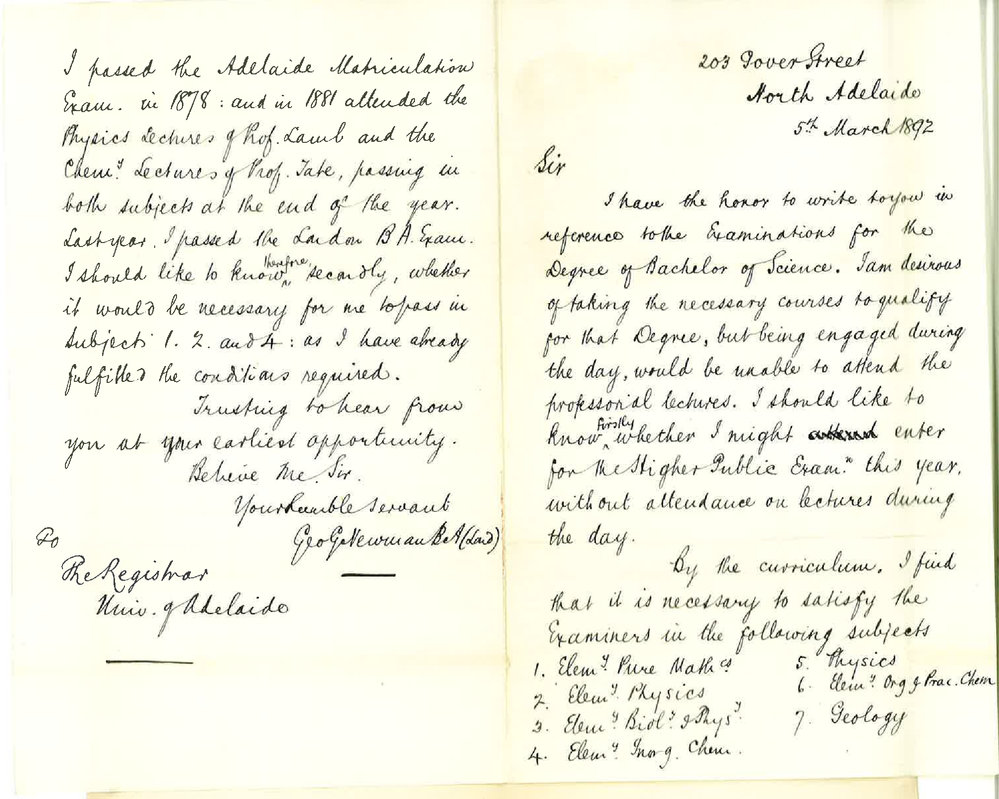 203 Gover Street
North Adelaide
5th March 1892
Sir
I have the honor to write to you in
reference to the Examinations for the
Degree of Bachelor of Science. I am desirous
of taking the necessary courses to qualify
for that Degree, but being engaged during
the day, would be unable to attend the
professorial lectures. I should like to
know firstly whether I might attend enter
for the Higher Public Exam.n this year,
without attendance on lectures during
the day.
By the curriculum, I find
that it is necessary to satisfy the
Examiners in the following subjects
1. Elemy. Pure Mathcs
2. Elemy. Physics
3. Elemy. Bioly. & Physy.
4. Elemy. Inorg. Chem.
5. Physics
6. Elemy. Org & Prac. Chem
7. Geology
I passed the Adelaide Matriculation
Exam. in 1878: and in 1881 attended the
Physics Lectures of Prof. Lamb and the
Chemy. Lectures of Prof. Tate, passing in
both subjects at the end of the year.
Last year, I passed the London B.A. Exam.
I should like to know therefore, secondly, whether
it would be necessary for me to pass in
subject 1. 2. and 4: as I have already
fulfilled the conditions required.
Trusting to hear from
you at your earliest opportunity.
Believe Me, Sir.
Your humble servant
Geo G Newman B.A (Lond)
To
The Registrar
Univ. of Adelaide